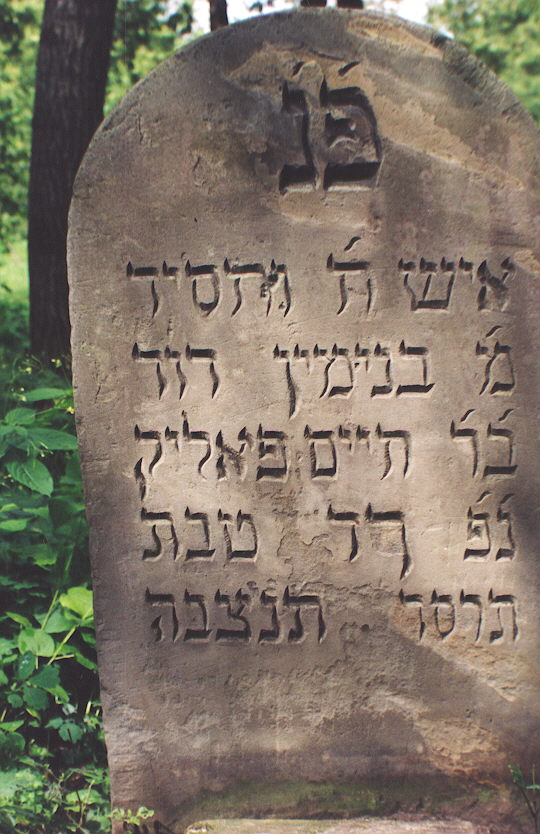 פ׳נ׳
איש ת׳ וחסיד
מ׳ בנימין דוד
ב׳ר׳ חיים פאליק
נ׳פ׳ ךד טבת
תרסד תנצבה